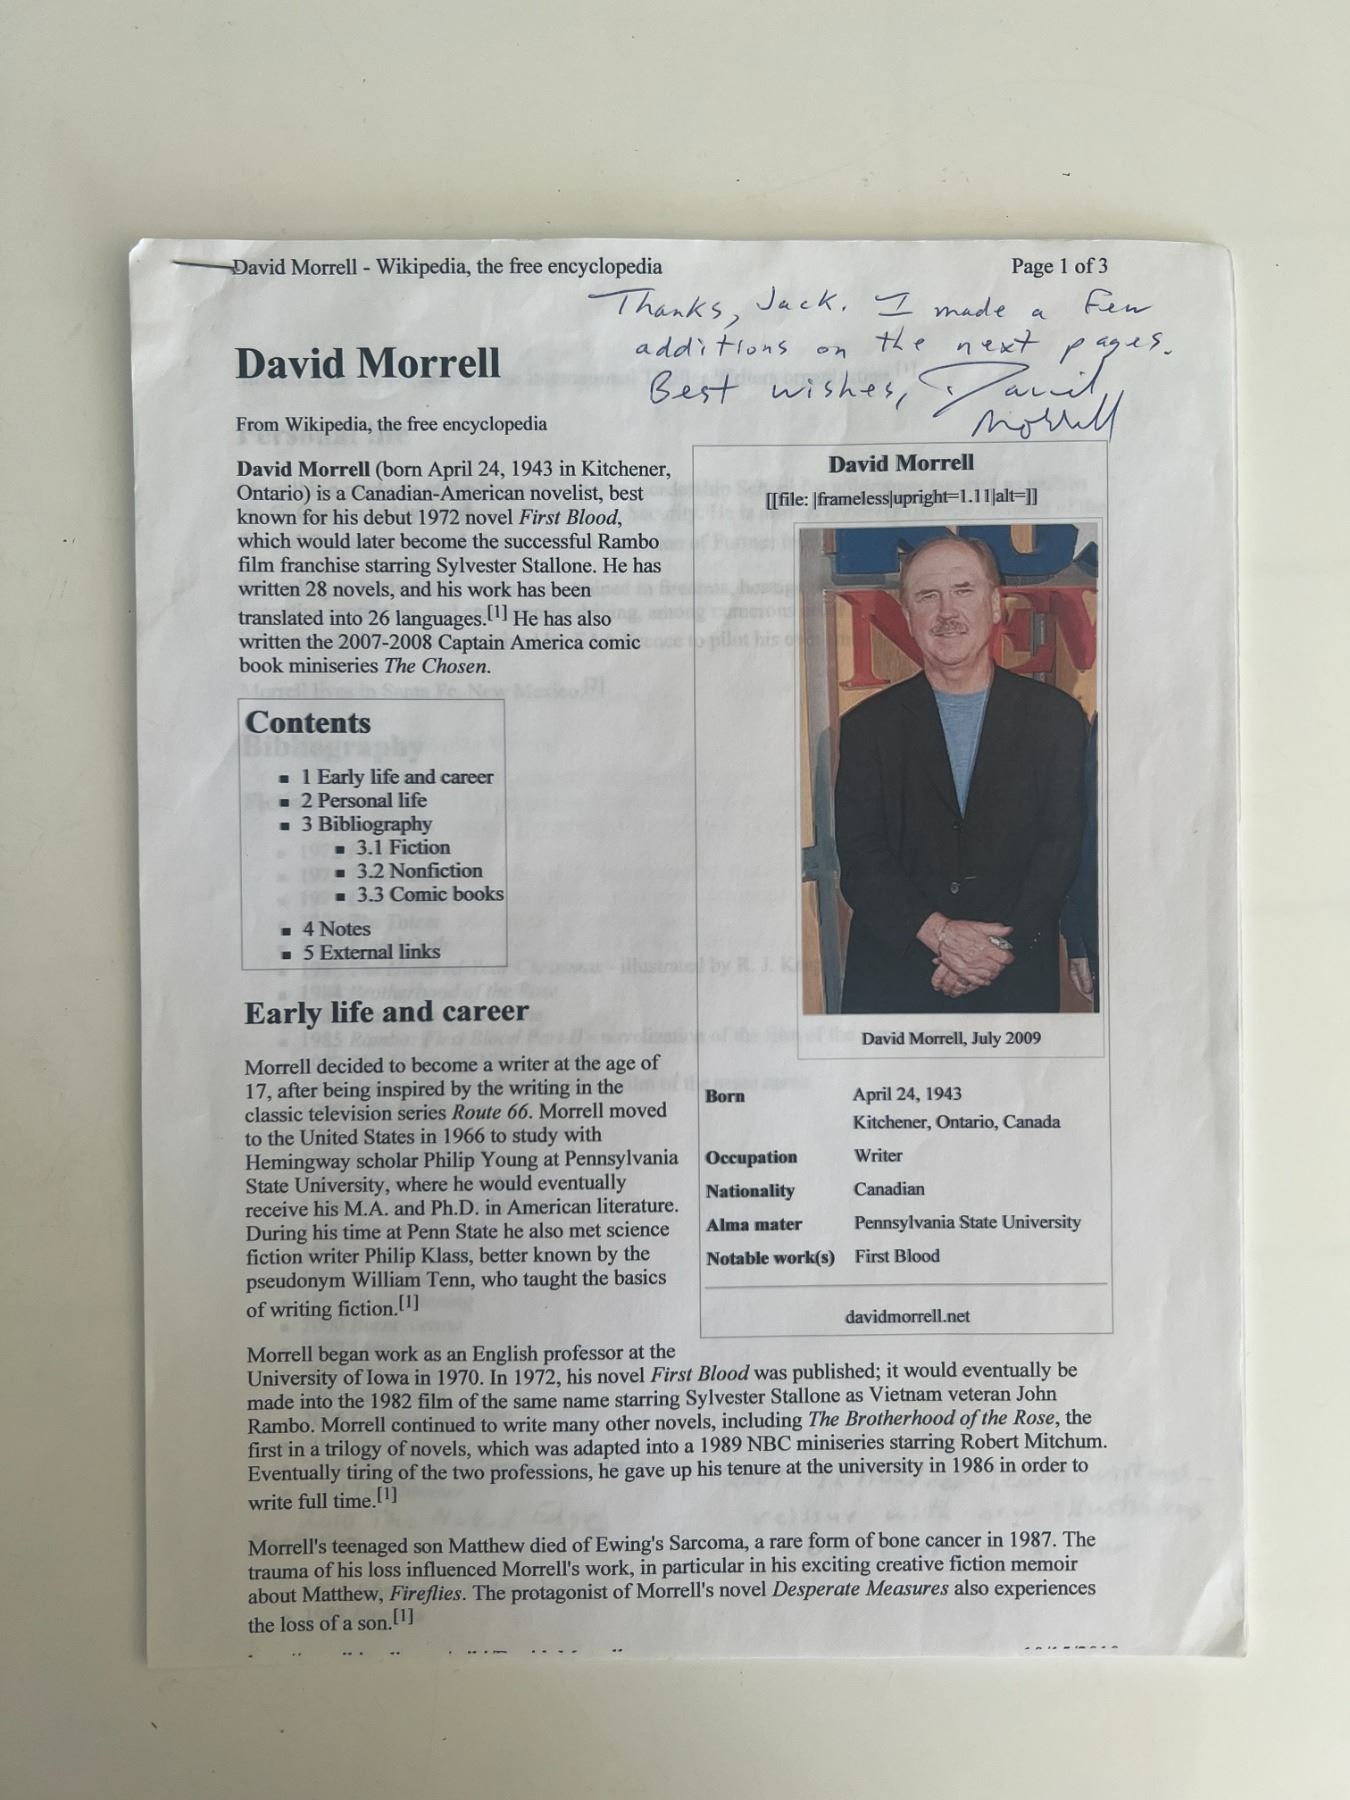 David Morrell - Wikipedia, the free encyclopedia
Page 1 of 3
Thanks, Jack. I made a few
additions on the next pages.
Best wishes, David
Morrell
David Morrell
From Wikipedia, the free encyclopedia
David Morrell (born April 24, 1943 in Kitchener,
Ontario) is a Canadian-American novelist, best
known for his debut 1972 novel First Blood,
which would later become the successful Rambo
film franchise starring Sylvester Stallone. He has
written 28 novels, and his work has been
translated into 26 languages.[1] He has also
written the 2007-2008 Captain America comic
book miniseries The Chosen.
Contents
▪ 1 Early life and career
▪ 2 Personal life
▪ 3 Bibliography
▪ 3.1 Fiction
▪ 3.2 Nonfiction
▪ 3.3 Comic books
▪ 4 Notes
▪ 5 External links
Early life and career
Morrell decided to become a writer at the age of
17, after being inspired by the writing in the
classic television series Route 66. Morrell moved
to the United States in 1966 to study with
Hemingway scholar Philip Young at Pennsylvania
State University, where he would eventually
receive his M.A. and Ph.D. in American literature.
During his time at Penn State he also met science
fiction writer Philip Klass, better known by the
pseudonym William Tenn, who taught the basics
of writing fiction.[1]
David Morrell
[[file: |frameless|upright=1.11|alt=]]
David Morrell, July 2009
Born April 24, 1943
Kitchener, Ontario, Canada
Occupation Writer
Nationality Canadian
Alma mater Pennsylvania State University
Notable work(s) First Blood
davidmorrell.net
Morrell began work as an English professor at the
University of Iowa in 1970. In 1972, his novel First Blood was published; it would eventually be
made into the 1982 film of the same name starring Sylvester Stallone as Vietnam veteran John
Rambo. Morrell continued to write many other novels, including The Brotherhood of the Rose, the
first in a trilogy of novels, which was adapted into a 1989 NBC miniseries starring Robert Mitchum.
Eventually tiring of the two professions, he gave up his tenure at the university in 1986 in order to
write full time.[1]
Morrell's teenaged son Matthew died of Ewing's Sarcoma, a rare form of bone cancer in 1987. The
trauma of his loss influenced Morrell's work, in particular in his exciting creative fiction memoir
about Matthew, Fireflies. The protagonist of Morrell's novel Desperate Measures also experiences
the loss of a son.[1]